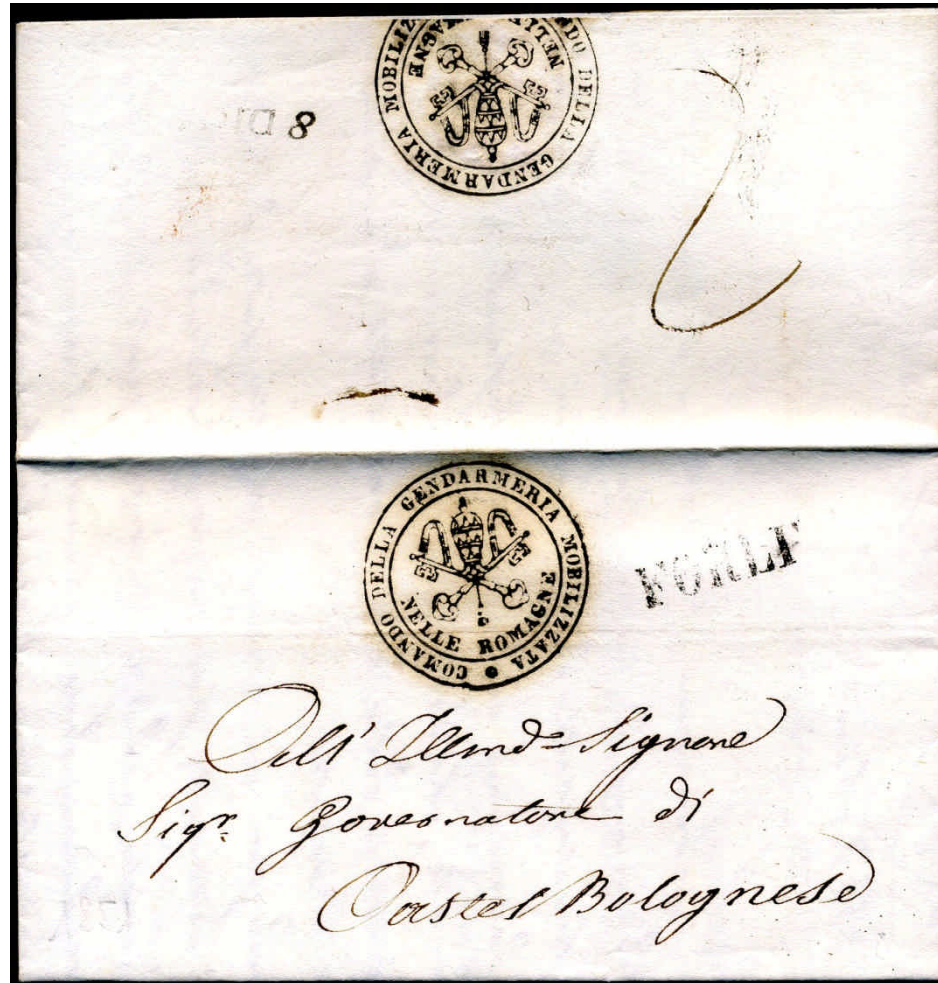 COMANDO DELLA GENDARMERIA MOBILIZ
NELLE
AGNE
8
2
COMANDO DELLA GENDARMERIA MOBILIZZATA
NELLE ROMAGNE
FORLI'
All' Illmo Signore
Sigr. Governatore di
Castel Bolognese